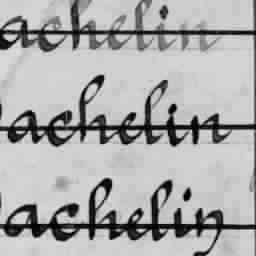 achelin
achelin
achelin